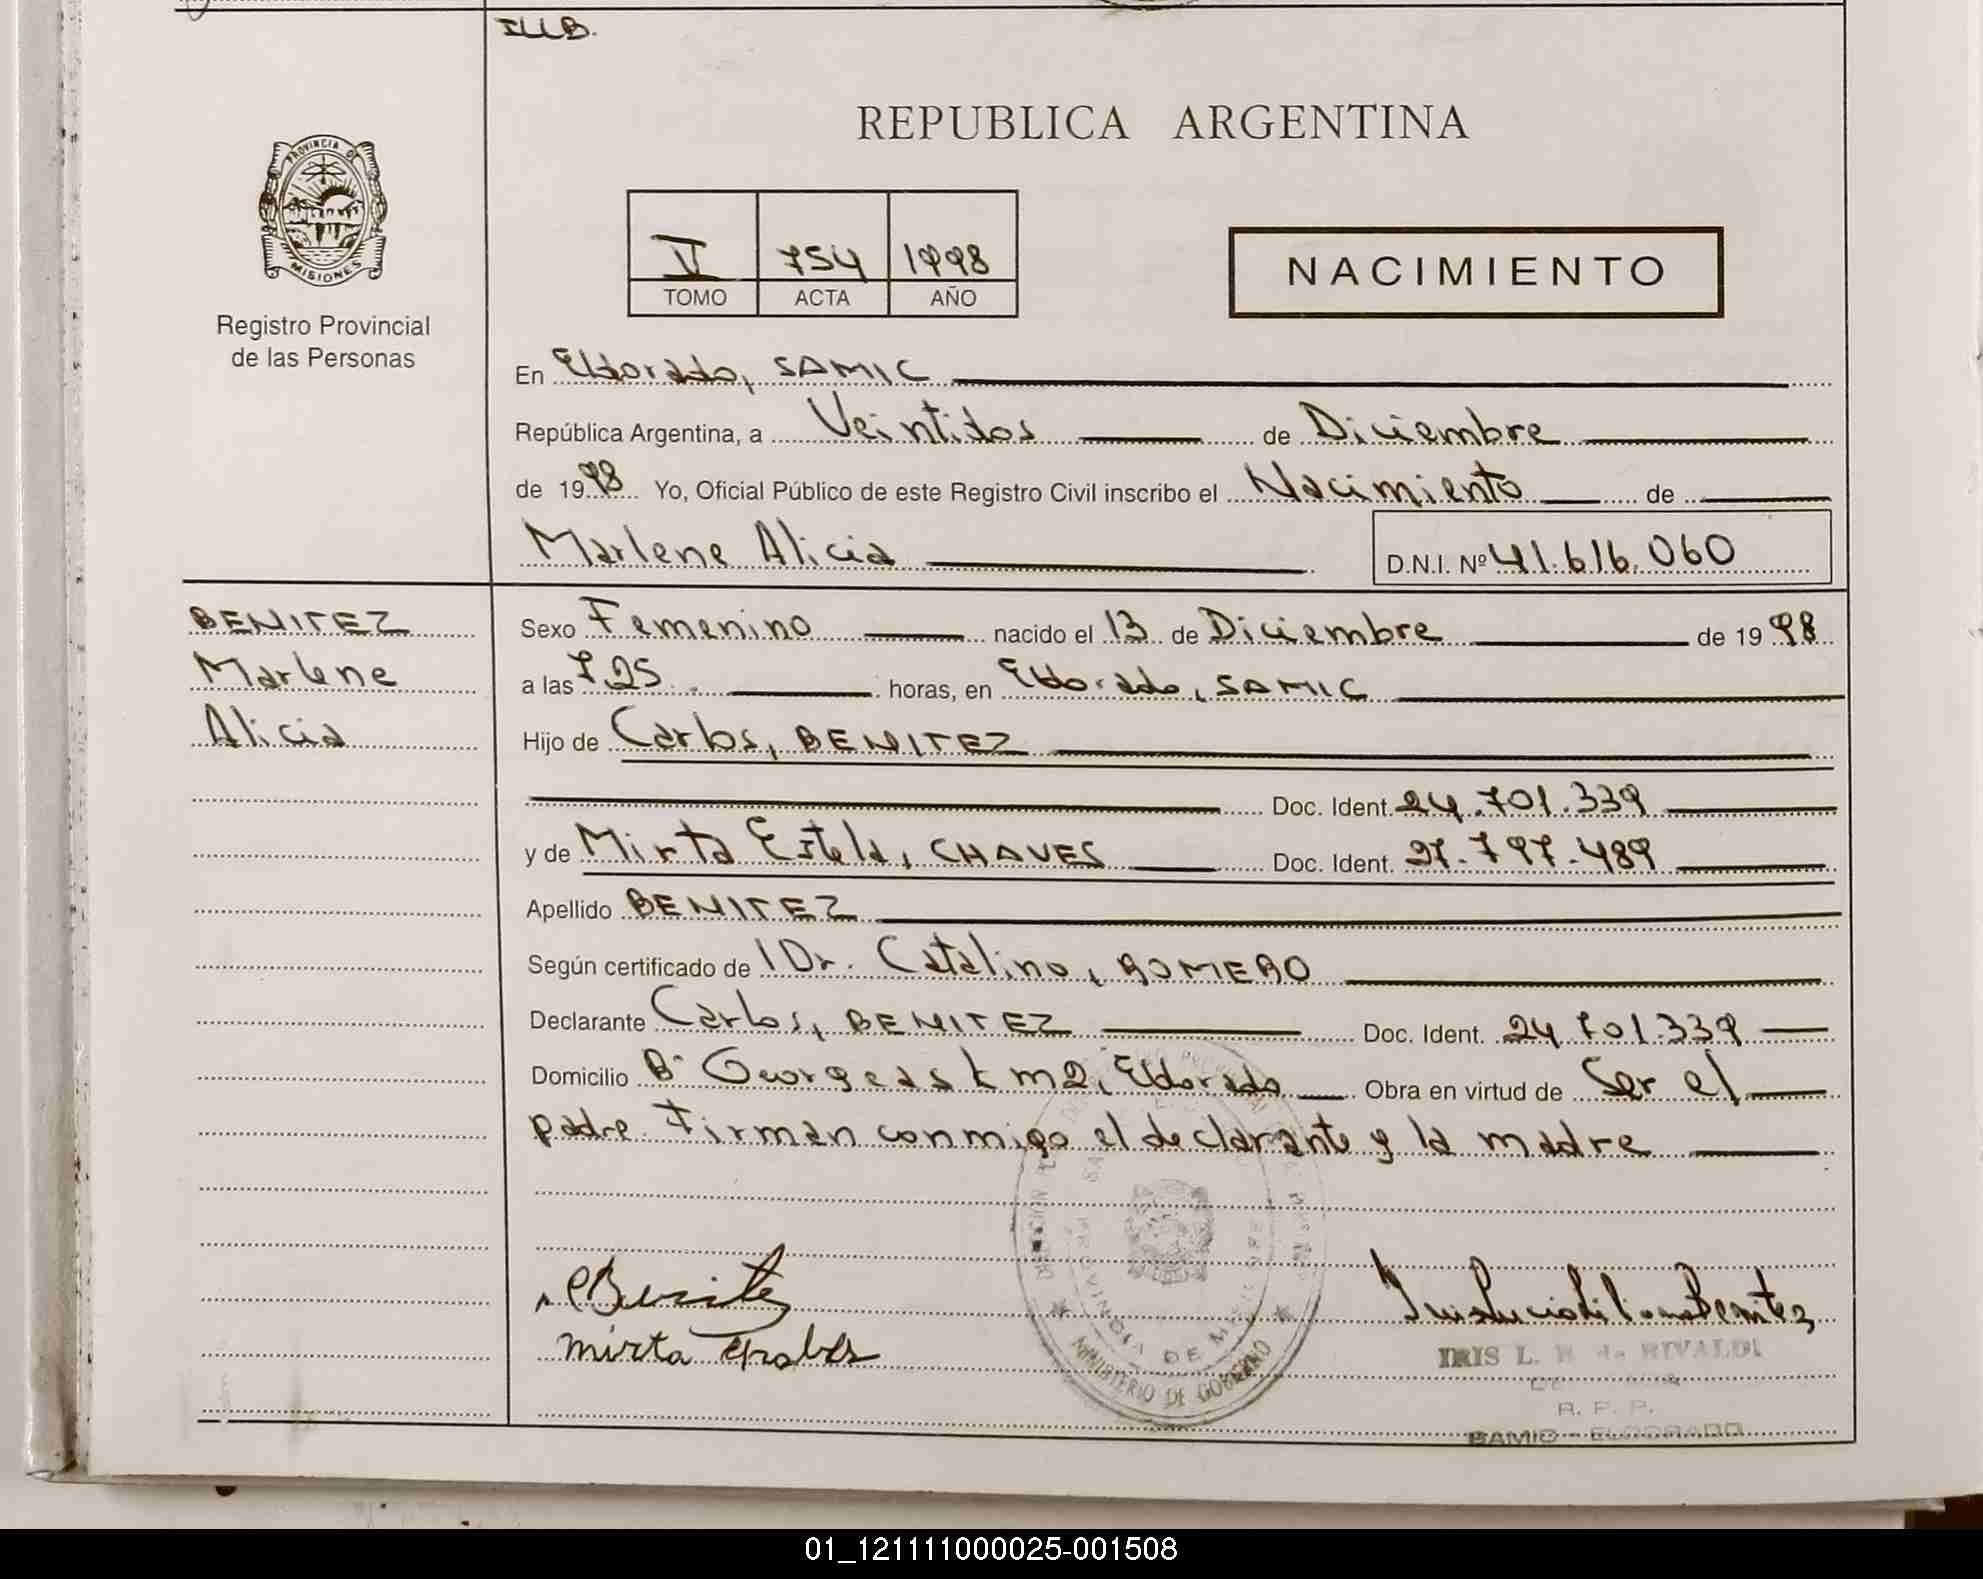 ILLB.
REPUBLICA ARGENTINA
PROVINCIA DE
MISIONES
Registro Provincial
de las Personas
V 754 1998
TOMO ACTA AÑO
NACIMIENTO
En Eldorado, SAMIC
República Argentina, a Veintidos de Diciembre
de 1998 Yo, Oficial Público de este Registro Civil inscribo el Nacimiento de
Marlene Alicia D.N.I. Nº 41.616.060
BENITEZ
Marlene
Alicia
Sexo Femenino nacido el 13 de Diciembre de 1998
a las 7,25 horas, en Eldorado, SAMIC
Hijo de Carlos, BENITEZ
Doc. Ident. 24.701.339
y de Mirta Estela, CHAVES Doc. Ident. 27.797.489
Apellido BENITEZ
Según certificado de Dr. Catalino, ROMERO
Declarante Carlos, BENITEZ Doc. Ident. 24.701.339
Domicilio Bº km 2, Eldorado Obra en virtud de Ser el
padre. Firman conmigo el declarante y la madre
PROVINCIA DE MISIONES
MINISTERIO DE GOBIERNO
Benitez
Mirta
Benitez
IRIS L. B. de RIVALDI
R. P. P.
SAMIC - ELDORADO
01_121111000025-001508